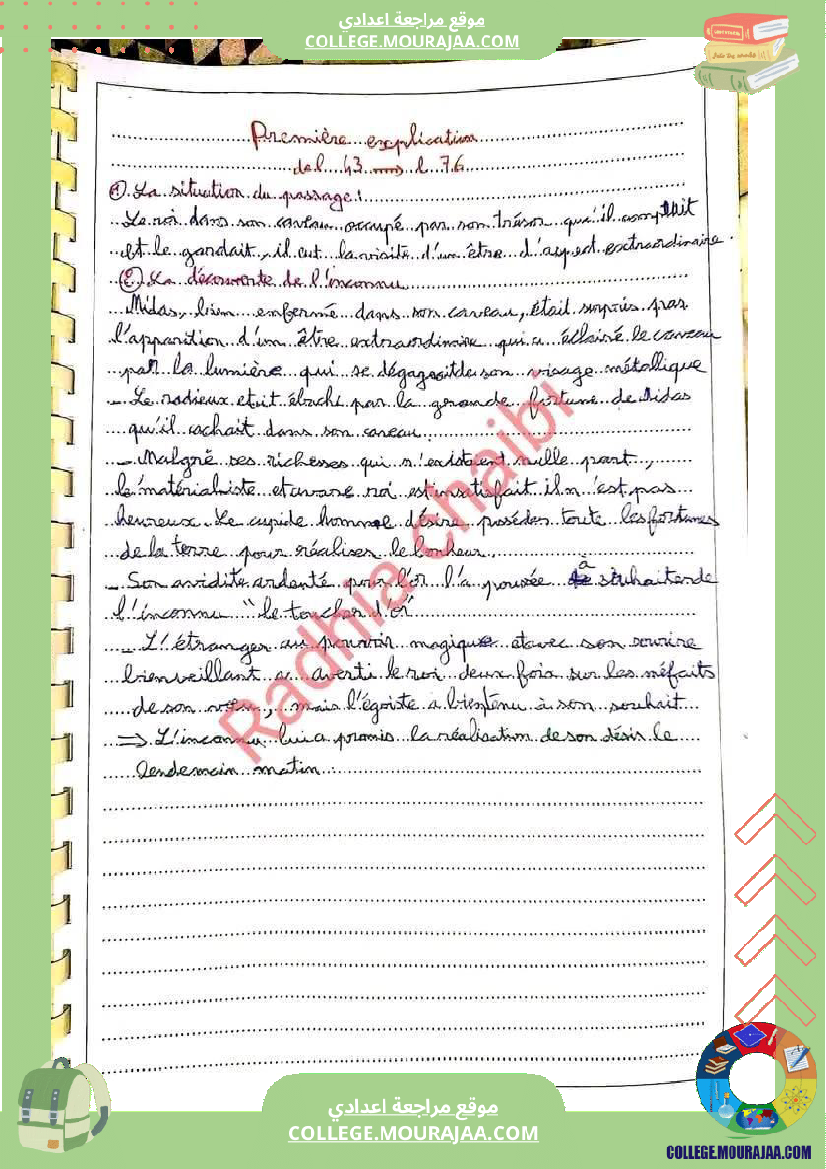 موقع مراجعة اعدادي
COLLEGE.MOURAJAA.COM
Première explication
de l 43 l. 76
1) La situation du passage :
Le roi dans son caveau occupé par son trésor qu'il comptait
et le gardait, il eut la visite d'un être d'aspect extraordinaire.
2) La découverte de l'inconnu
Midas, bien enfermé dans son caveau, était surpris par
l'apparition d'un être extraordinaire qui a éclairé le caveau
par la lumière qui se dégageait de son visage métallique
- Le radieux etait ébachi par la grande fortune de Midas
qu'il cachait dans son caveau
- Malgré ses richesses qui n'existent nulle part,
le matérialiste et avare roi est insatisfait il n'est pas
heureux. Le cupide homme désire posséder toute les fortunes
de la terre pour réaliser le bonheur.
- Son avidité ardente pour l'or l'a poussée à souhaiter de
l'inconnu "le toucher d'or"
- L'étranger au pouvoir magique et avec son sourire
bienveillant a averti le roi deux fois sur les méfaits
de son mais l'égoiste a bien tenu à son souhait
⇒ L'inconnu lui a promis la réalisation de son désir le
lendemain matin.
Radhia chaibi
موقع مراجعة اعدادي
COLLEGE.MOURAJAA.COM
COLLEGE.MOURAJAA.COM